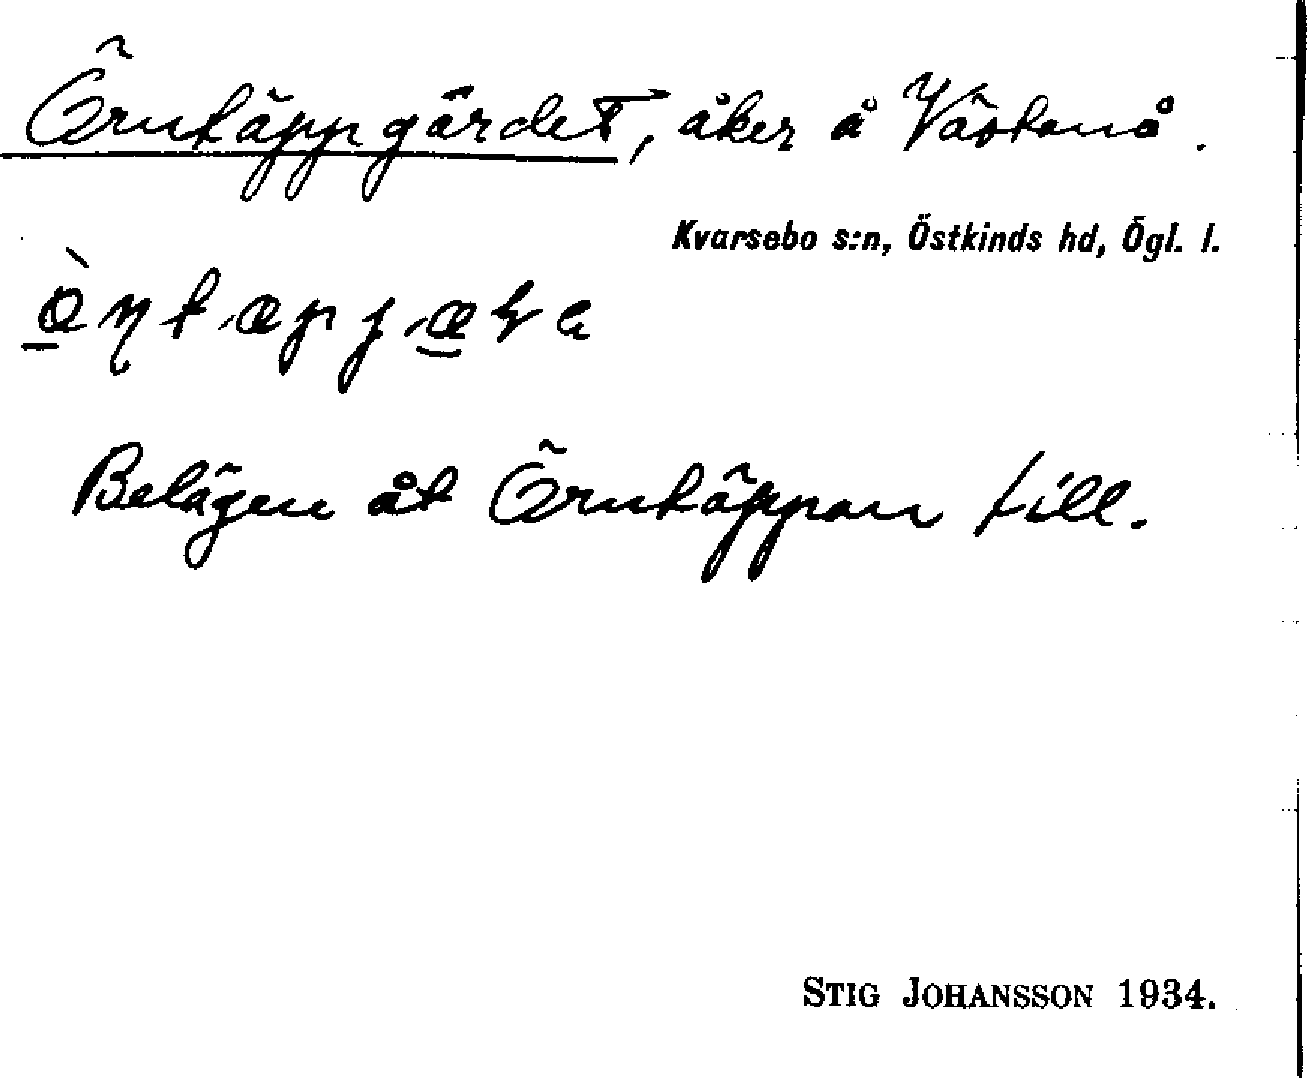 Örntäppgärdet, åker å Västanå.
Kvarsebo s:n, Östkinds hd, Ögl. l.
Belägen åt Örntäppan till.
STIG JOHANSSON 1934.